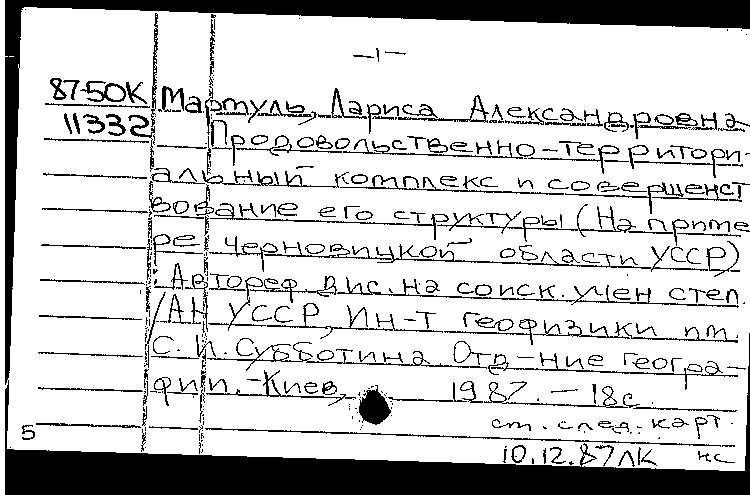 —1—
87-50К Мартуль, Лариса Александровна
11332 Продовольственно-территори-
альный комплекс и совершенст
вование его структуры (На приме
ре Черновицкой области УССР)
: Автореф. дис. на соиск. учен степ.
/АН УССР, Ин-т геофизики им.
С. И. Субботина Отд-ние геогра-
фии. - Киев, 1987. - 18с.
см. след. карт.
5 10.12.87ЛК нс